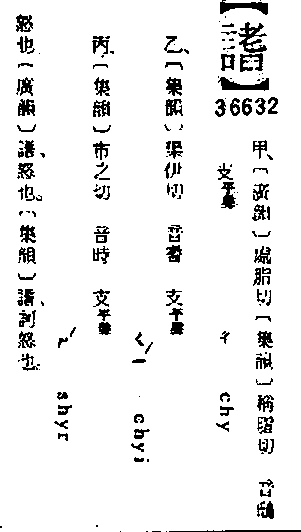 36632
甲、〔廣韻〕處脂切〔集韻〕稱脂切 音鴟
支平聲 ㄔ chy
乙、〔集韻〕渠伊切 音耆 支平聲
ㄑㄧˊ chyi
丙、〔集韻〕市之切 音時 支平聲
ㄕˊ shyr
怒也〔廣韻〕、怒也。〔集韻〕、訶怒也。